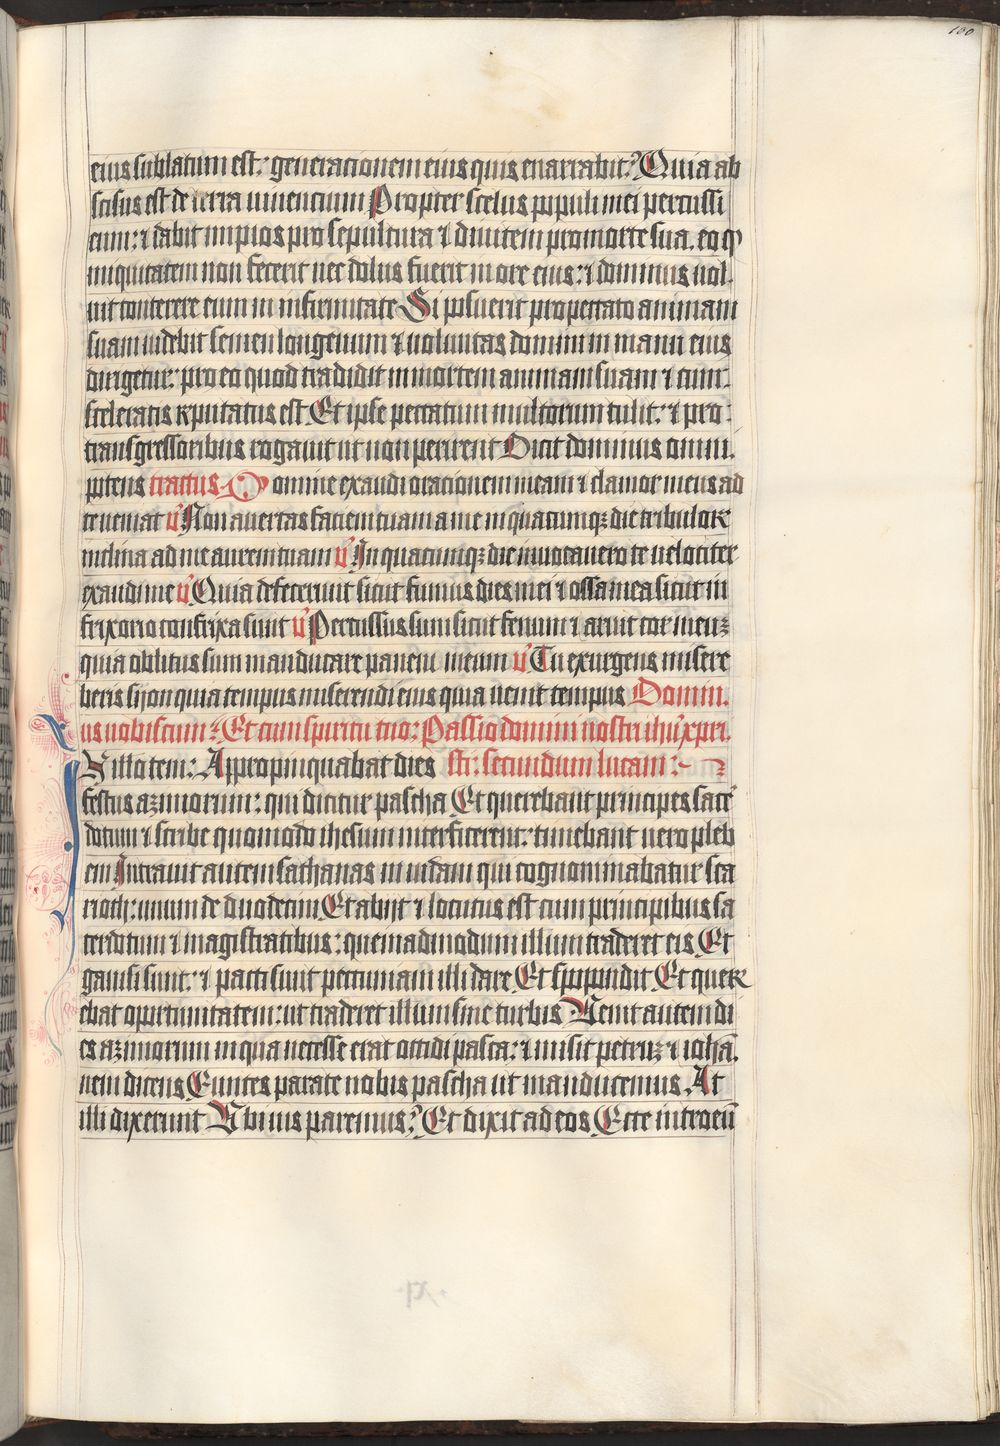 100
eius sublatum est: generacionem eius quis enarrabit? Quia ab
scisus est de terra uiuencium Propter scelus populi mei percussi
eum: ⁊ dabit impios pro sepultura ⁊ diuitem pro morte sua. eo qͥ
iniquitatem non fecerit nec dolus fuerit in ore eius: ⁊ dominus uol.
uit conterere eum in infirmitate Si posuerit pro peccato animam
suam uidebit semen longeuum ⁊ uoluntas domini in manu eius
dirigetur: pro eo quod tradidit in mortem animam suam ⁊ cum.
sceleratis reputatus est Et ipse peccatum multorum tulit: ⁊ pro.
transgressoribus rogauit ut non perirent Dicit dominus omni.
potens tractus Domine exaudi oracionem meam ⁊ clamor meus ad
te ueniat v̾ Non auertas faciem tuam a me in quacumqꝫ die tribulor
inclina ad me aurem tuam v̾ In quacumqꝫ die inuocauero te uelociter
exaudi me v̾ Quia defecerunt sicut fumus dies mei ⁊ ossa mea sicut in
frixorio confrixa sunt v̾ Percussus sum sicut fenum ⁊ aruit cor meuꝫ
quia oblitus sum manducare panem meum v̾ Tu exurgens misere
beris sijon quia tempus miserendi eius quia uenit tempus Domin.
us uobiscum: Et cum spiritu tuo: Passio domini nostri ihū xpri.
In illo tem: Appropinquabat dies sti: secundum lucam:
festus azimorum: qui dicitur pascha Et querebant principes sacer̄
dotum ⁊ scribe quomodo ihesum interficerent: timebant uero pleb
em Intrauit autem sathanas in iudam qui cognominabatur sca
rioth: unum de duodecim Et abijt ⁊ locutus est cum principibus sa
cerdotum ⁊ magistratibus: quemadmodum illum traderet eis Et
gauisi sunt: ⁊ pacti sunt pecuniam illi dare Et spopondit Et quer
ebat oportunitatem: ut traderet illum sine turbis Uenit autem di
es azimorum in qua necesse erat occidi pasca: ⁊ misit petruꝫ ⁊ iohā.
nem dicens Euntes parate nobis pascha ut manducemus. At
illi dixerunt Ubi uis paremus? Et dixit ad eos Ecce introeū